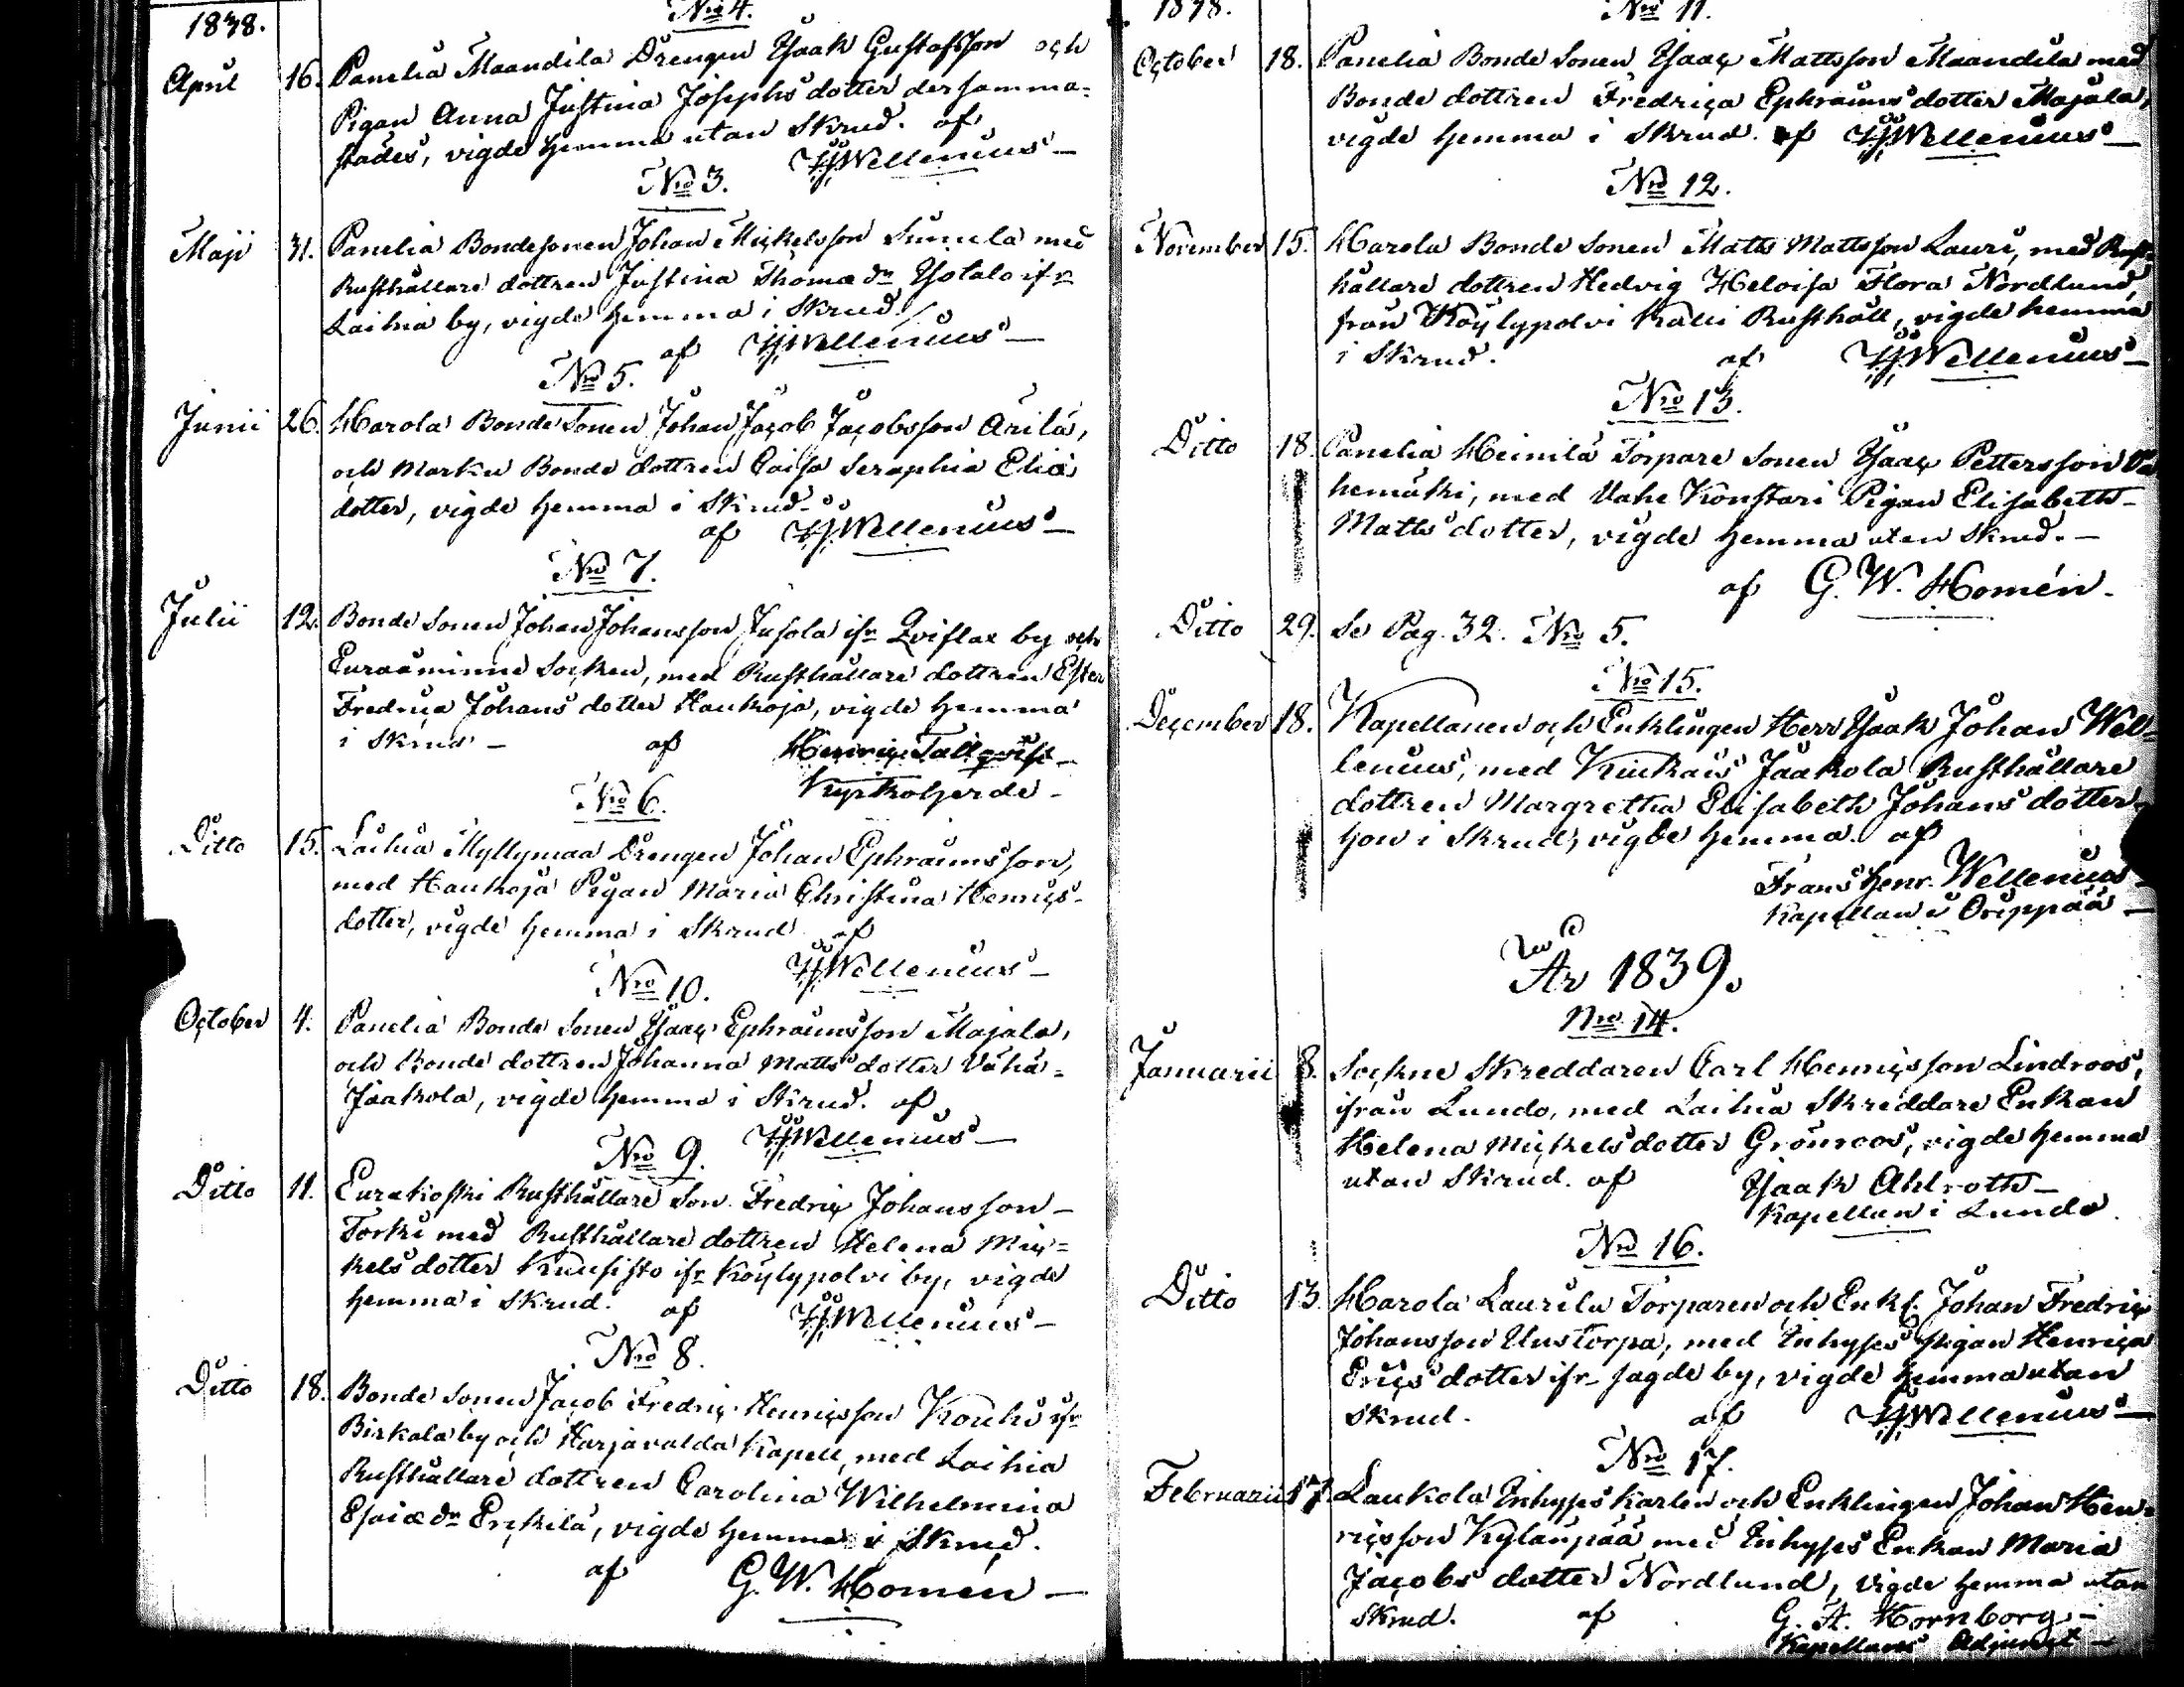 1838.
No 4.
April 16. Panelia Maandila Drengen Ysaak Gustafsson och
Pigan Anna Justina Josephs dotter dersamma-
stades, vigde hemma utan Skrud. af
IJWellenius
No 3.
Maji 31. Panelia Bondesonen Johan Mickelsson Sumela med
Rusthållare dottren Justina Thomædr Ysotalo ifr
Laihia by, vigde hemma i Skrud
af IJWellenius
No 5.
Junii 26. Harola Bonde Sonen Johan Jacob Jacobsson Arila,
och Marku Bonde dottren Caisa Seraphia Eliæ
dotter, vigde hemma i Skrud
af IJWellenius
No 7.
Julii 12. Bonde Sonen Johan Johansson Jusola ifr Qviflax by och
Euraåminne Socken, med Rusthållare dottren Ester
Fredrica Johans dotter Haukoja, vigde hemma
i Skrud af Henric Tallqvist
Kyrkoherde
No 6.
Ditto 15. Laihia Myllymaa Drengen Johan Ephraimsson,
med Haukoja Pigan Maria Christina Henrics-
dotter, vigde hemma i Skrud af
IJWellenius
No 10.
October 4. Panelia Bonde Sonen Ysaac Ephraimsson Majala,
och Bonde dottren Johanna Matts dotter Vähä-
Jaakola, vigde hemma i Skrud. af
IJWellenius
No 9.
Ditto 11. Eurakoski Rusthållare Son Fredric Johansson
Torki med Rusthållare dottren Helena Mic-
kels dotter Kuusisto ifr Köylypolvi by, vigde
hemma i Skrud. af IJWellenius
No 8.
Ditto 18. Bonde Sonen Jacob Fredric Henricsson Kouhi ifr
Birkala by och Harjavalda Kapell, med Laihia
Rusthållare dottren Carolina Wilhelmina
Esaiædr Erckilä, vigde hemma i Skrud.
af G. W. Homén
1838.
No 11.
October 18. Panelia Bonde Sonen Ysaac Mattsson Maandila med
Bonde dottren Fredrica Ephraims dotter Majala,
vigde hemma i Skrud. af IJWellenius
No 12.
November 15. Harola Bonde Sonen Matts Mattsson Lauri, med Rust-
hållare dottren Hedvig Heloisa Flora Nordlund,
från Köylypolvi Kalli Rusthåll, vigde hemma
i Skrud. af IJWellenius
No 13.
Ditto 18. Panelia Heinilä Torpare Sonen Ysaac Pettersson Va
hemäki, med Vahe Konstari Pigan Elisabeth
Matts dotter, vigde hemma utan Skrud.
af G. W. Homén.
Ditto 29. Se Pag. 32. No 5.
No 15.
December 18. Kapellanen och Enklingen Herr Ysaak Johan Wel-
lenius, med Kiukais Jaakola Rusthållare
dottren Margretha Elisabeth Johans dotter,
hon i Skrud, vigde hemma. af
Frans Henr. Wellenius
Kapellan i Orippää
År 1839.
No 14.
Januarii 8. Sockne Skreddaren Carl Henricsson Lindroos,
ifrån Lundo, med Laihia Skreddare Enkan
Helena Mickels dotter Grönroos, vigde hemma
utan Skrud. af Ysaak Ahlroth
Kapellan i Lundo
No 16.
Ditto 13. Harola Laurila Torparen och Enkl. Johan Fredric
Johansson Uustorpa, med Inhyses pigan Henrica
Erics dotter ifr Sagde by, vigde hemma utan
Skrud. af IJWellenius
No 17.
Februarii 17. Laukola Inhyses Karlen och Enklingen Johan Hen-
ricsson Kylänpää med Inhyses Enkan Maria
Jacobs dotter Nordlund, vigde hemma utan
Skrud. af G. A. Hornborg
Kapellans Adjunct